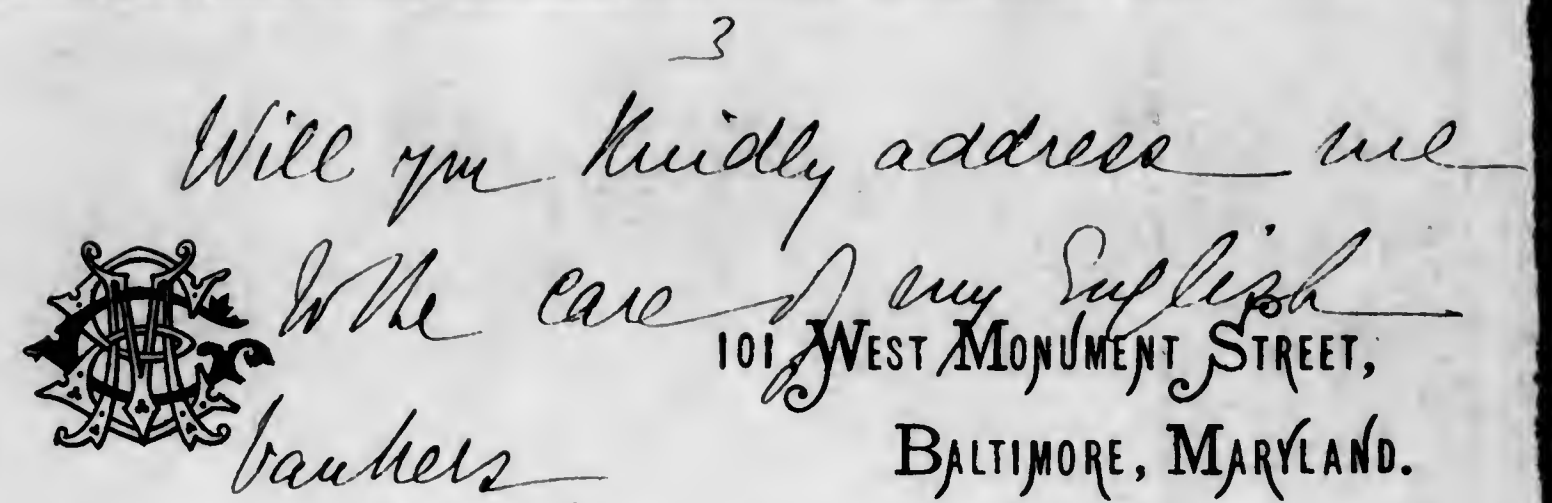 3
Will you Kindly address me
to the care of my English
101 WEST MONUMENT STREET,
bankers
BALTIMORE, MARYLAND.